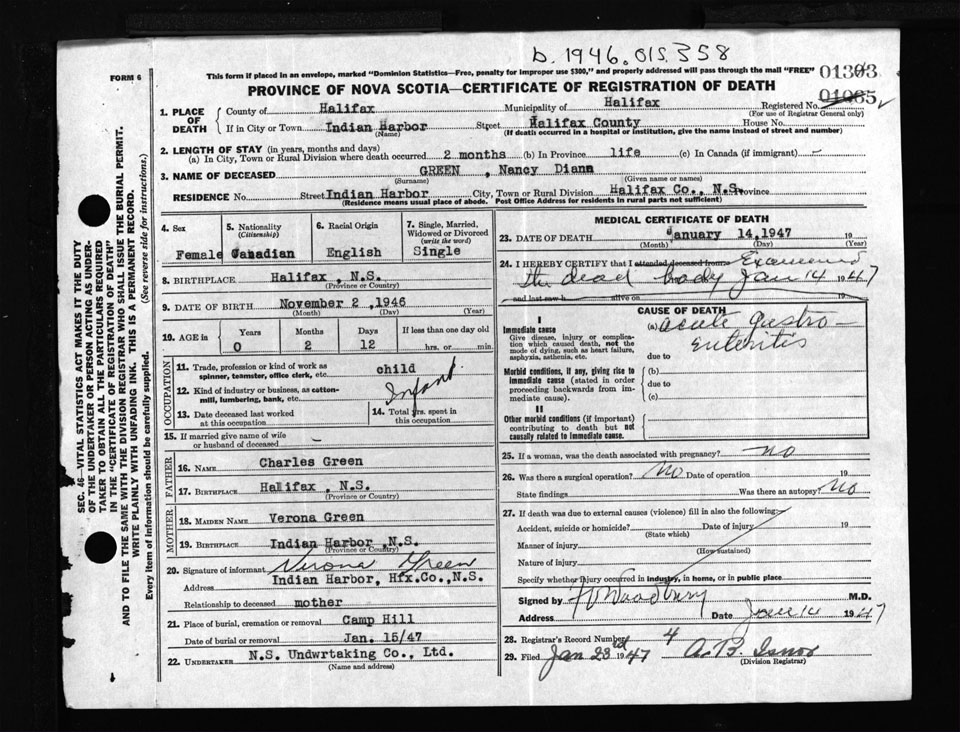 D. 1946.015.358
FORM 6
This form if placed in an envelope, marked "Dominion Statistics—Free, penalty for improper use $300," and properly addressed will pass through the mail "FREE"
01303
01065
PROVINCE OF NOVA SCOTIA—CERTIFICATE OF REGISTRATION OF DEATH
1. PLACE OF DEATH
County of Halifax Municipality of Halifax Registered No.
(For use of Registrar General only)
If in City or Town Indian Harbor Street Halifax County House No.
(Name) (If death occurred in a hospital or institution, give the name instead of street and number)
2. LENGTH OF STAY (in years, months and days)
(a) In City, Town or Rural Division where death occurred 2 months (b) In Province life (c) In Canada (if immigrant) -
3. NAME OF DECEASED GREEN, Nancy Diana
(Surname) (Given name or names)
RESIDENCE No. Street Indian Harbor City, Town or Rural Division Halifax Co., N.S. Province
(Residence means usual place of abode. Post Office Address for residents in rural parts not sufficient)
4. Sex
Female
5. Nationality
(Citizenship)
Canadian
6. Racial Origin
English
7. Single, Married,
Widowed or Divorced
(write the word)
Single
8. BIRTHPLACE Halifax, N.S.
(Province or Country)
9. DATE OF BIRTH November 2, 1946
(Month) (Day) (Year)
10. AGE in Years Months Days If less than one day old
0 2 12 hrs. or min.
OCCUPATION
11. Trade, profession or kind of work as
spinner, teamster, office clerk, etc. child
12. Kind of industry or business, as cotton-
mill, lumbering, bank, etc. Infant
13. Date deceased last worked
at this occupation
14. Total yrs. spent in
this occupation
15. If married give name of wife
or husband of deceased -
FATHER
16. NAME Charles Green
17. BIRTHPLACE Halifax, N.S.
(Province or Country)
MOTHER
18. MAIDEN NAME Verona Green
19. BIRTHPLACE Indian Harbor, N.S.
(Province or Country)
20. Signature of informant Verona Green
Address Indian Harbor, Hfx.Co., N.S.
Relationship to deceased mother
21. Place of burial, cremation or removal Camp Hill
Date of burial or removal Jan. 15/47
22. UNDERTAKER N.S. Undwrtaking Co., Ltd.
(Name and address)
MEDICAL CERTIFICATE OF DEATH
23. DATE OF DEATH January 14, 1947 19
(Month) (Day) (Year)
24. I HEREBY CERTIFY that I attended deceased from Examined
the dead body Jan 14 1947
and last saw h alive on 19
CAUSE OF DEATH
I
Immediate cause
Give disease, injury or complica-
tion which caused death, not the
mode of dying, such as heart failure,
asphyxia, asthenia, etc.
(a) acute gastro-
enteritis
due to
Morbid conditions, if any, giving rise to
immediate cause (stated in order
proceeding backwards from im-
mediate cause).
(b)
due to
(c)
II
Other morbid conditions (if important)
contributing to death but not
causally related to immediate cause.
25. If a woman, was the death associated with pregnancy? no
26. Was there a surgical operation? No Date of operation 19
State findings Was there an autopsy? No
27. If death was due to external causes (violence) fill in also the following:
Accident, suicide or homicide? Date of injury 19
(State which)
Manner of injury
(How sustained)
Nature of injury
Specify whether injury occurred in industry, in home, or in public place
Signed by Woodbury M.D.
Address Date Jan 14 1947
28. Registrar's Record Number 4
29. Filed Jan 23rd 1947 A. B. Isnor
(Division Registrar)
SEC. 46—VITAL STATISTICS ACT MAKES IT THE DUTY
OF THE UNDERTAKER OR PERSON ACTING AS UNDER-
TAKER TO OBTAIN ALL THE PARTICULARS REQUIRED
IN THE "CERTIFICATE OF REGISTRATION OF DEATH"
AND TO FILE THE SAME WITH THE DIVISION REGISTRAR WHO SHALL ISSUE THE BURIAL PERMIT.
WRITE PLAINLY WITH UNFADING INK. THIS IS A PERMANENT RECORD.
Every item of information should be carefully supplied. (See reverse side for instructions.)